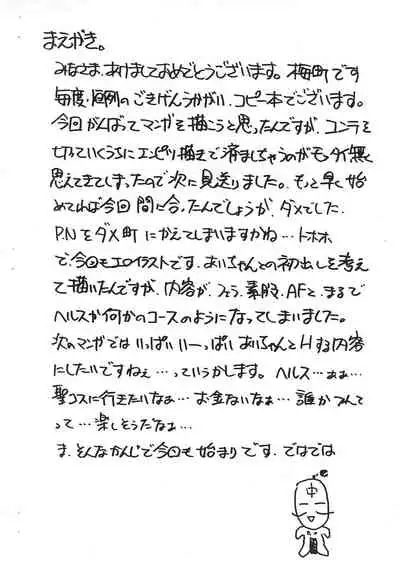 まえがき。
みなさま、あけましておめでとうございます。梅町です
毎度、恒例のごきげんうかがい、コピー本でございます。
今回がんばってマンガを描こうと思ったんですが、コンテを
切っていくうちにエンピツ描きで済ましちゃうのがモッタイ無く
思えてきてしまったので次に見送りました。もっと早く始
めてれば今回間に合ったんでしょうが、ダメでした。
P.Nをダメ町にかえてしまいますかね…トホホ
で、今回もエロイラストです。あいちゃんとの初出しを考え
て描いたんですが、内容が、フェラ、素股、AFと、まるで
ヘルスか何かのコースのようになってしまいました。
次のマンガではいっぱいいーっぱいあいちゃんとHする内容
にしたいですねぇ…っていうかします。ヘルス…ああ…
聖コスに行きたいなぁ…お金ないなぁ…誰かつれて
って…楽しそうだなぁ…
ま、そんなかんじで今回も始まりです。ではでは
中